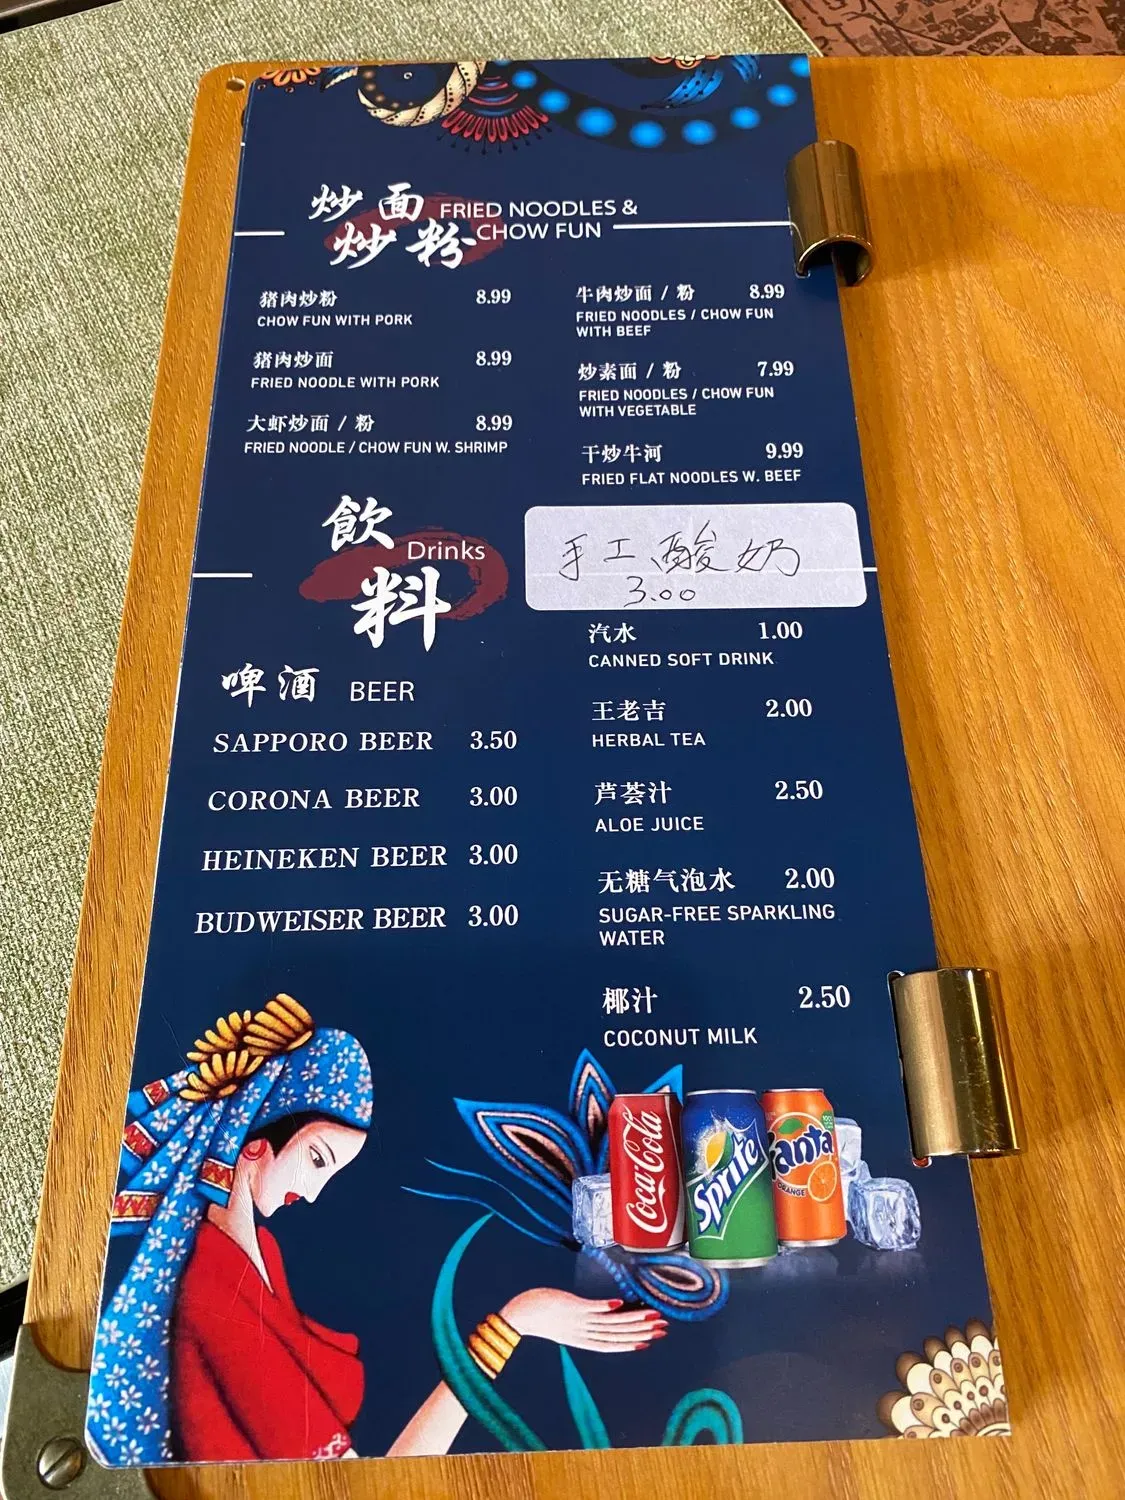 炒面
炒粉
FRIED NOODLES &
CHOW FUN
猪肉炒粉 8.99
CHOW FUN WITH PORK
猪肉炒面 8.99
FRIED NOODLE WITH PORK
大虾炒面 / 粉 8.99
FRIED NOODLE / CHOW FUN W. SHRIMP
牛肉炒面 / 粉 8.99
FRIED NOODLES / CHOW FUN
WITH BEEF
炒素面 / 粉 7.99
FRIED NOODLES / CHOW FUN
WITH VEGETABLE
干炒牛河 9.99
FRIED FLAT NOODLES W. BEEF
飲
料
Drinks
啤酒 BEER
SAPPORO BEER 3.50
CORONA BEER 3.00
HEINEKEN BEER 3.00
BUDWEISER BEER 3.00
手工酸奶
3.00
汽水 1.00
CANNED SOFT DRINK
王老吉 2.00
HERBAL TEA
芦荟汁 2.50
ALOE JUICE
无糖气泡水 2.00
SUGAR-FREE SPARKLING
WATER
椰汁 2.50
COCONUT MILK
Coca-Cola
Sprite
Fanta
ORANGE